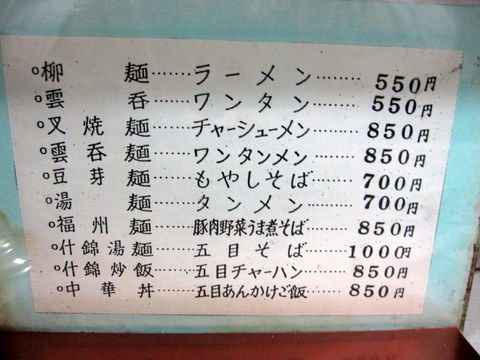 ○柳麺……ラーメン……550円
○雲呑……ワンタン……550円
○叉焼麺……チャーシューメン……850円
○雲呑麺……ワンタンメン……850円
○豆芽麺……もやしそば……700円
○湯麺……タンメン……700円
○福州麺……豚肉野菜うま煮そば……850円
○什錦湯麺……五目そば……1000円
○什錦炒飯……五目チャーハン……850円
○中華丼……五目あんかけご飯……850円